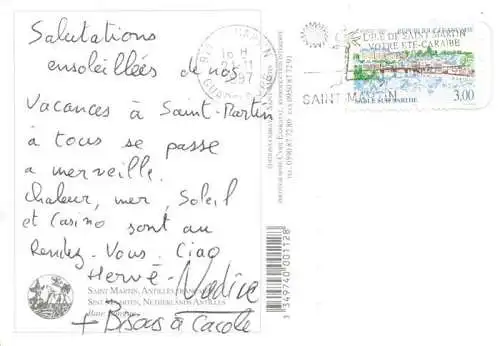 Salutations
ensoleillées de nos
Vacances à Saint-Martin
à tous se passe
a merveille.
Chaleur, mer, Soleil
et Casino sont au
Rendez-Vous. Ciao
Hervé - Nadine
+ Bisous à Carole
SAINT MARTIN, ANTILLES FRANÇAISES
SINT MAARTEN, NETHERLANDS ANTILLES
16 H
1997
L'ILE DE SAINT MARTIN
VOTRE ETE CARAIBE
SAINT MARTIN
SABLE SUR SARTHE
3,00
3 349740 001128